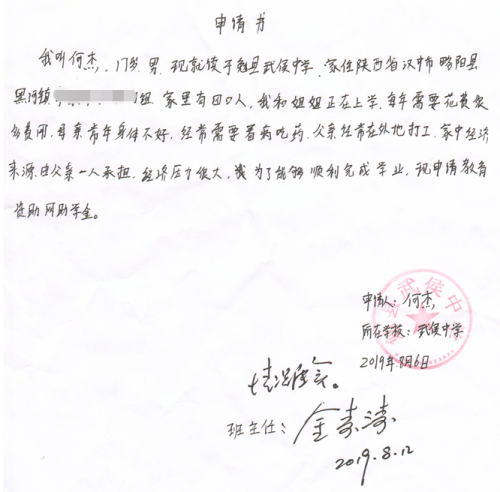 申请书
我叫何杰，17岁，男，现就读于勉县武侯中学，家住陕西省汉中市略阳县
黑河镇 组 家里有四口人，我和姐姐正在上学，每年需要花费很
多费用，母亲常年身体不好，经常需要看病吃药，父亲经常在外地打工，家中经济
来源由父亲一人承担，经济压力很大，我为了能够顺利完成学业，现申请教育
资助网助学金。
申请人：何杰，
所在学校：武侯中学
2019年8月6日
情况属实。
班主任：金素涛
2019.8.12
武侯中